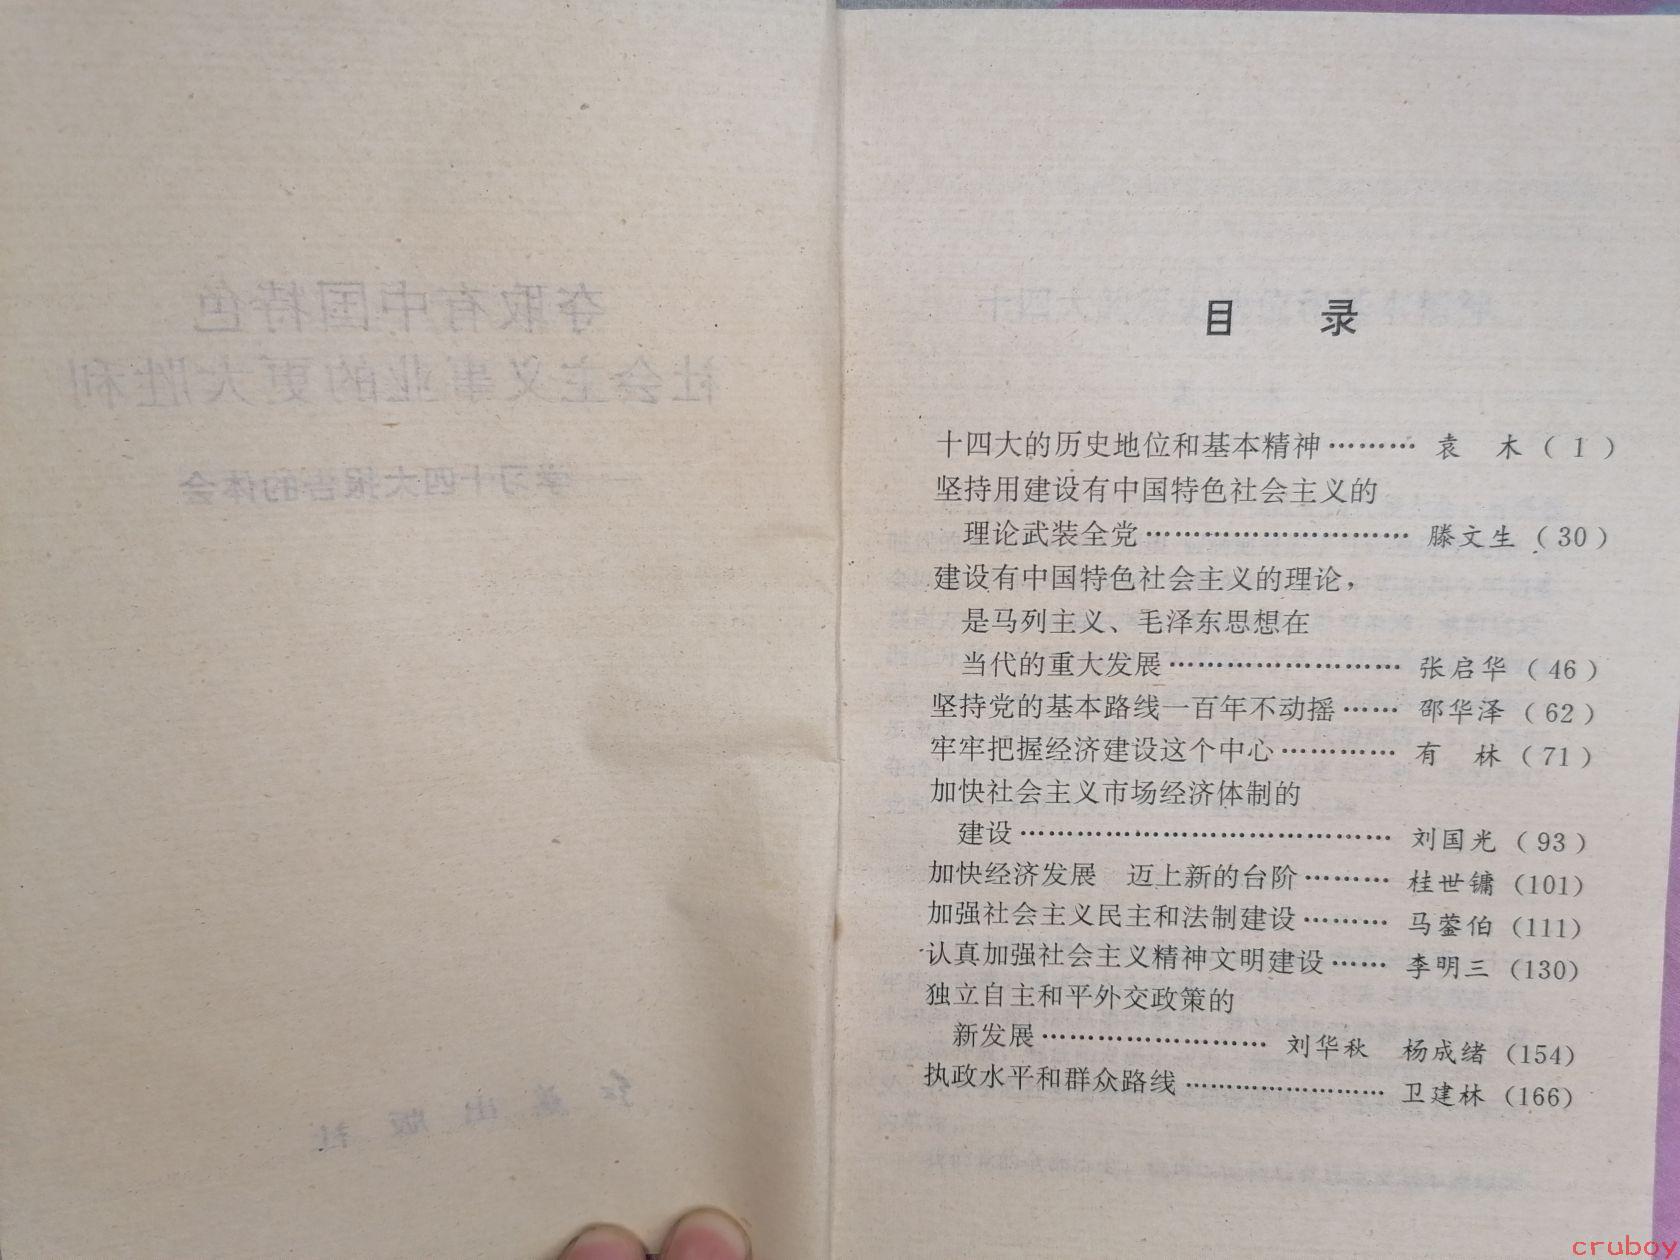 夺取有中国特色
社会主义事业的更大胜利
——学习十四大报告的体会
红旗出版社
目 录
十四大的历史地位和基本精神………袁 木(1)
坚持用建设有中国特色社会主义的
理论武装全党………………………滕文生(30)
建设有中国特色社会主义的理论，
是马列主义、毛泽东思想在
当代的重大发展……………………张启华(46)
坚持党的基本路线一百年不动摇……邵华泽(62)
牢牢把握经济建设这个中心…………有 林(71)
加快社会主义市场经济体制的
建设…………………………………刘国光(93)
加快经济发展 迈上新的台阶………桂世镛(101)
加强社会主义民主和法制建设………马蓥伯(111)
认真加强社会主义精神文明建设……李明三(130)
独立自主和平外交政策的
新发展……………………刘华秋 杨成绪(154)
执政水平和群众路线…………………卫建林(166)
cruboy